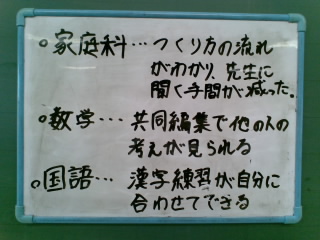 ○家庭科…つくり方の流れ
がわかり、先生に
聞く手間が減った。
○数学…共同編集で他の人の
考えが見られる
○国語…漢字練習が自分に
合わせてできる